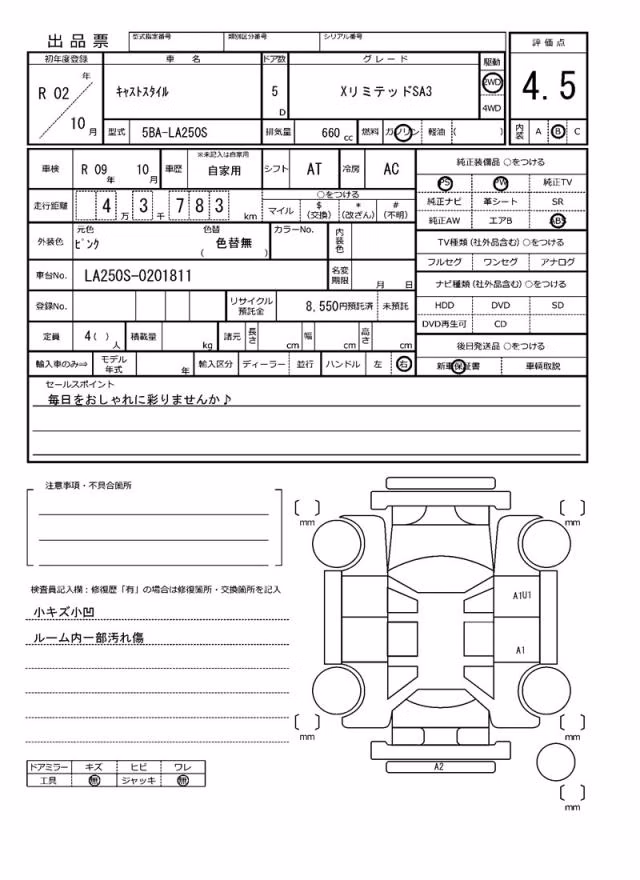 出品票
型式指定番号 類別区分番号 シリアル番号
評価点
初年度登録 車名 ドア数 グレード 駆動
R 02 年 10 月
キャストスタイル
5 D
XリミテッドSA3
2WD
4WD
4.5
型式 5BA-LA250S 排気量 660 cc 燃料 ガソリン 軽油 ( )
内装 A B C
車検 R 09 年 10 月 車歴 ※未記入は自家用 自家用 シフト AT 冷房 AC
走行距離 4 万 3 千 7 8 3 km
○をつける
マイル $ (交換) * (改ざん) # (不明)
外装色 元色 ピンク 色替 色替無 ( ) カラーNo. 内装色
車台No. LA250S-0201811 名変期限 月 日
登録No. リサイクル預託金 8,550円預託済 未預託
定員 4 ( ) 人 積載量 kg 諸元 長さ cm 幅 cm 高さ cm
輸入車のみ⇒ モデル年式 年 輸入区分 ディーラー 並行 ハンドル 左 右
純正装備品 ○をつける
PS PW 純正TV
純正ナビ 革シート SR
純正AW エアB ABS
TV種類 (社外品含む) ○をつける
フルセグ ワンセグ アナログ
ナビ種類 (社外品含む) ○をつける
HDD DVD SD
DVD再生可 CD
後日発送品 ○をつける
新車保証書 車輌取説
セールスポイント
毎日をおしゃれに彩りませんか♪
注意事項・不具合箇所
検査員記入欄：修復歴「有」の場合は修復箇所・交換箇所を記入
小キズ小凹
ルーム内一部汚れ傷
ドアミラー キズ ヒビ ワレ
工具 無 ジャッキ 無
mm
mm
A1U1
A1
mm
mm
A2
mm